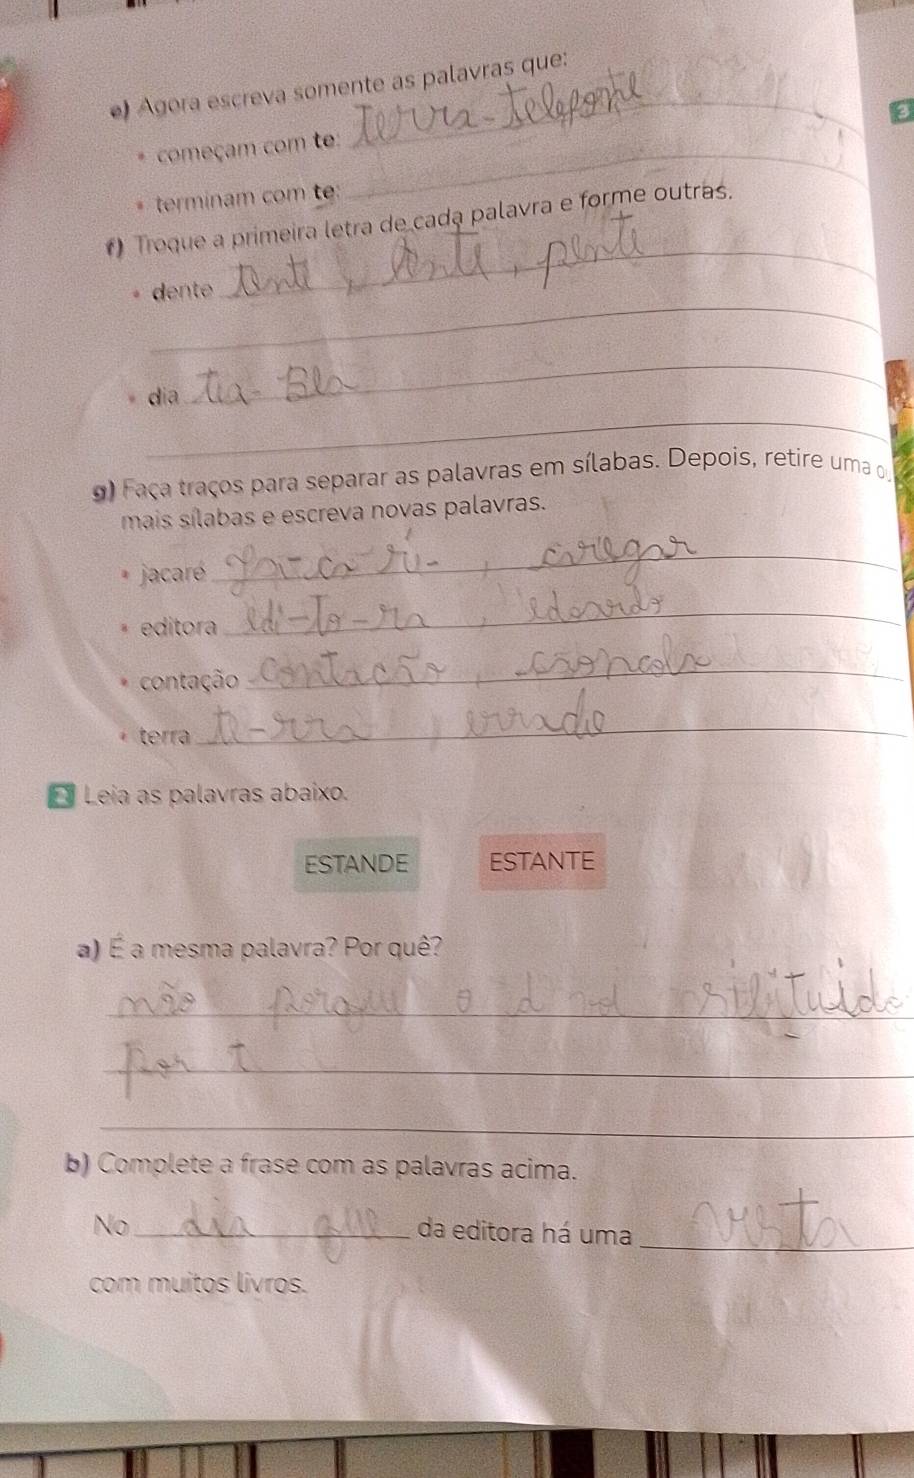 e) Agora escreva somente as palavras que:
3
• começam com te: Terra - Telefone
• terminam com te:
f) Troque a primeira letra de cada palavra e forme outras.
• dente tente, lente, pente
• dia tia -
g) Faça traços para separar as palavras em sílabas. Depois, retire uma ou
mais sílabas e escreva novas palavras.
• jacaré
• editora edi-to-ra, edoardo
• contação contação,
• terra te-rra, errado
2 Leia as palavras abaixo.
ESTANDE ESTANTE
a) É a mesma palavra? Por quê?
não porque o d
por t
b) Complete a frase com as palavras acima.
No dia que da editora há uma
com muitos livros.